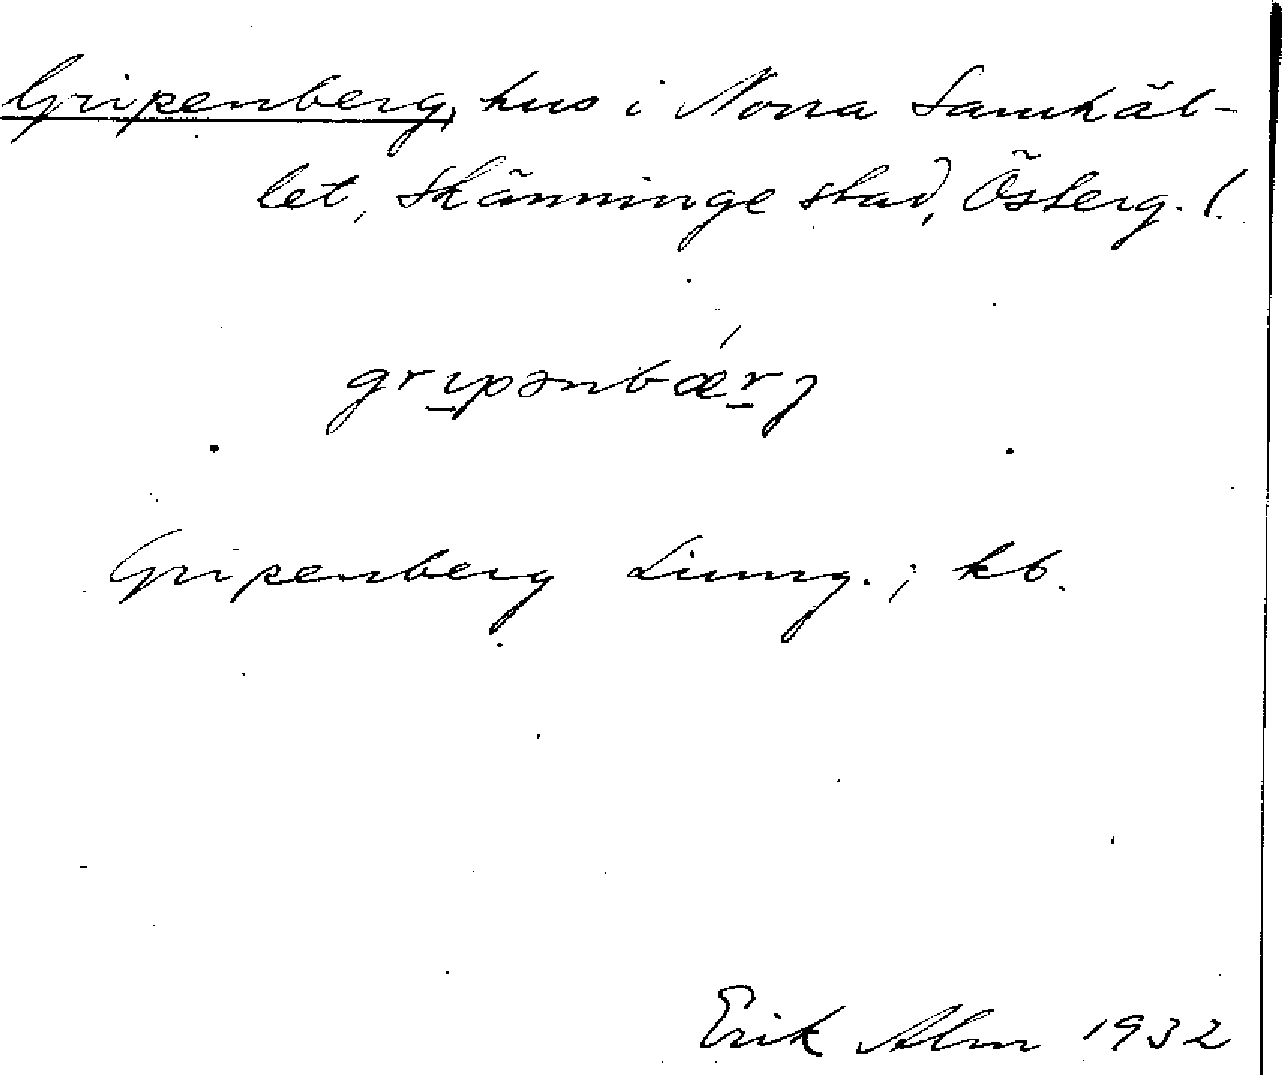 Gripenberg, hus i Norra Samhäl-
let, Skänninge stad, Österg. l.
gripənbǽrj
Gripenberg Ljung.; kb.
Erik Alm 1932